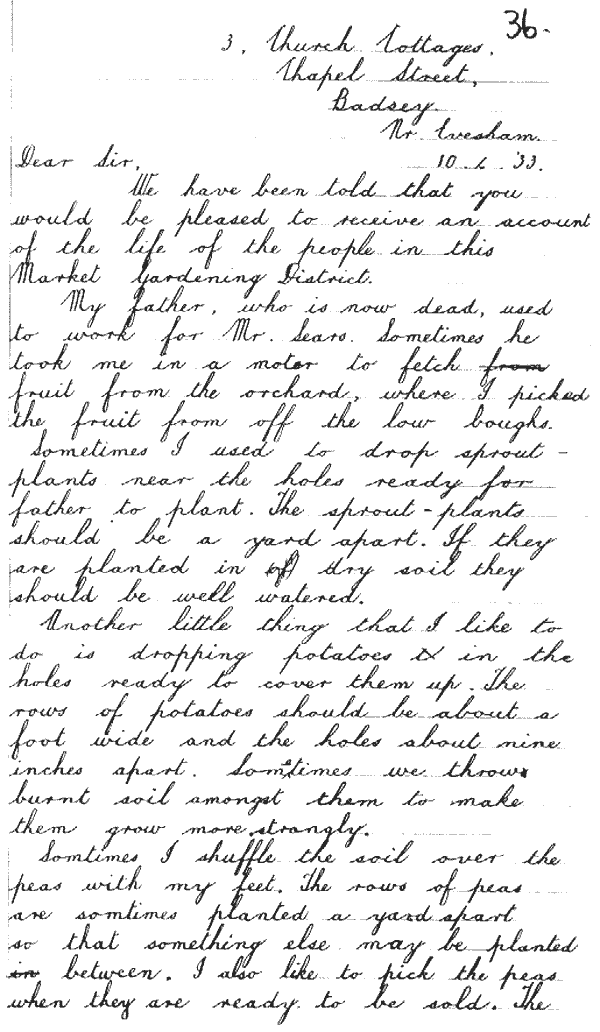 36.
3, Church Cottages,
Chapel Street,
Badsey.
Nr. Evesham.
Dear Sir,
10 . 1 . 33.
We have been told that you
would be pleased to receive an account
of the life of the people in this
Market Gardening District.
My father, who is now dead, used
to work for Mr. Sears. Sometimes he
took me in a motor to fetch from
fruit from the orchard, where I picked
the fruit from off the low boughs.
Sometimes I used to drop sprout-
plants near the holes ready for
father to plant. The sprout-plants
should be a yard apart. If they
are planted in dry soil they
should be well watered.
Another little thing that I like to
do is dropping potatoes in the
holes ready to cover them up. The
rows of potatoes should be about a
foot wide and the holes about nine
inches apart. Sometimes we throw
burnt soil amongst them to make
them grow more strangly.
Somtimes I shuffle the soil over the
peas with my feet. The rows of peas
are somtimes planted a yard apart
so that something else may be planted
in between. I also like to pick the peas
when they are ready to be sold. The